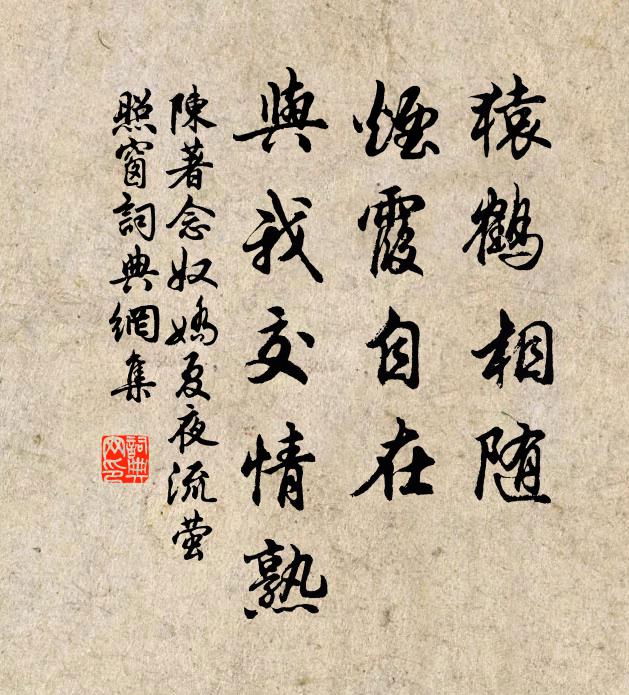 猿鶴相随
煙霞自在
與我交情熟
陳著念奴嬌夏夜流萤
照窗詞典網集
詞典
网印